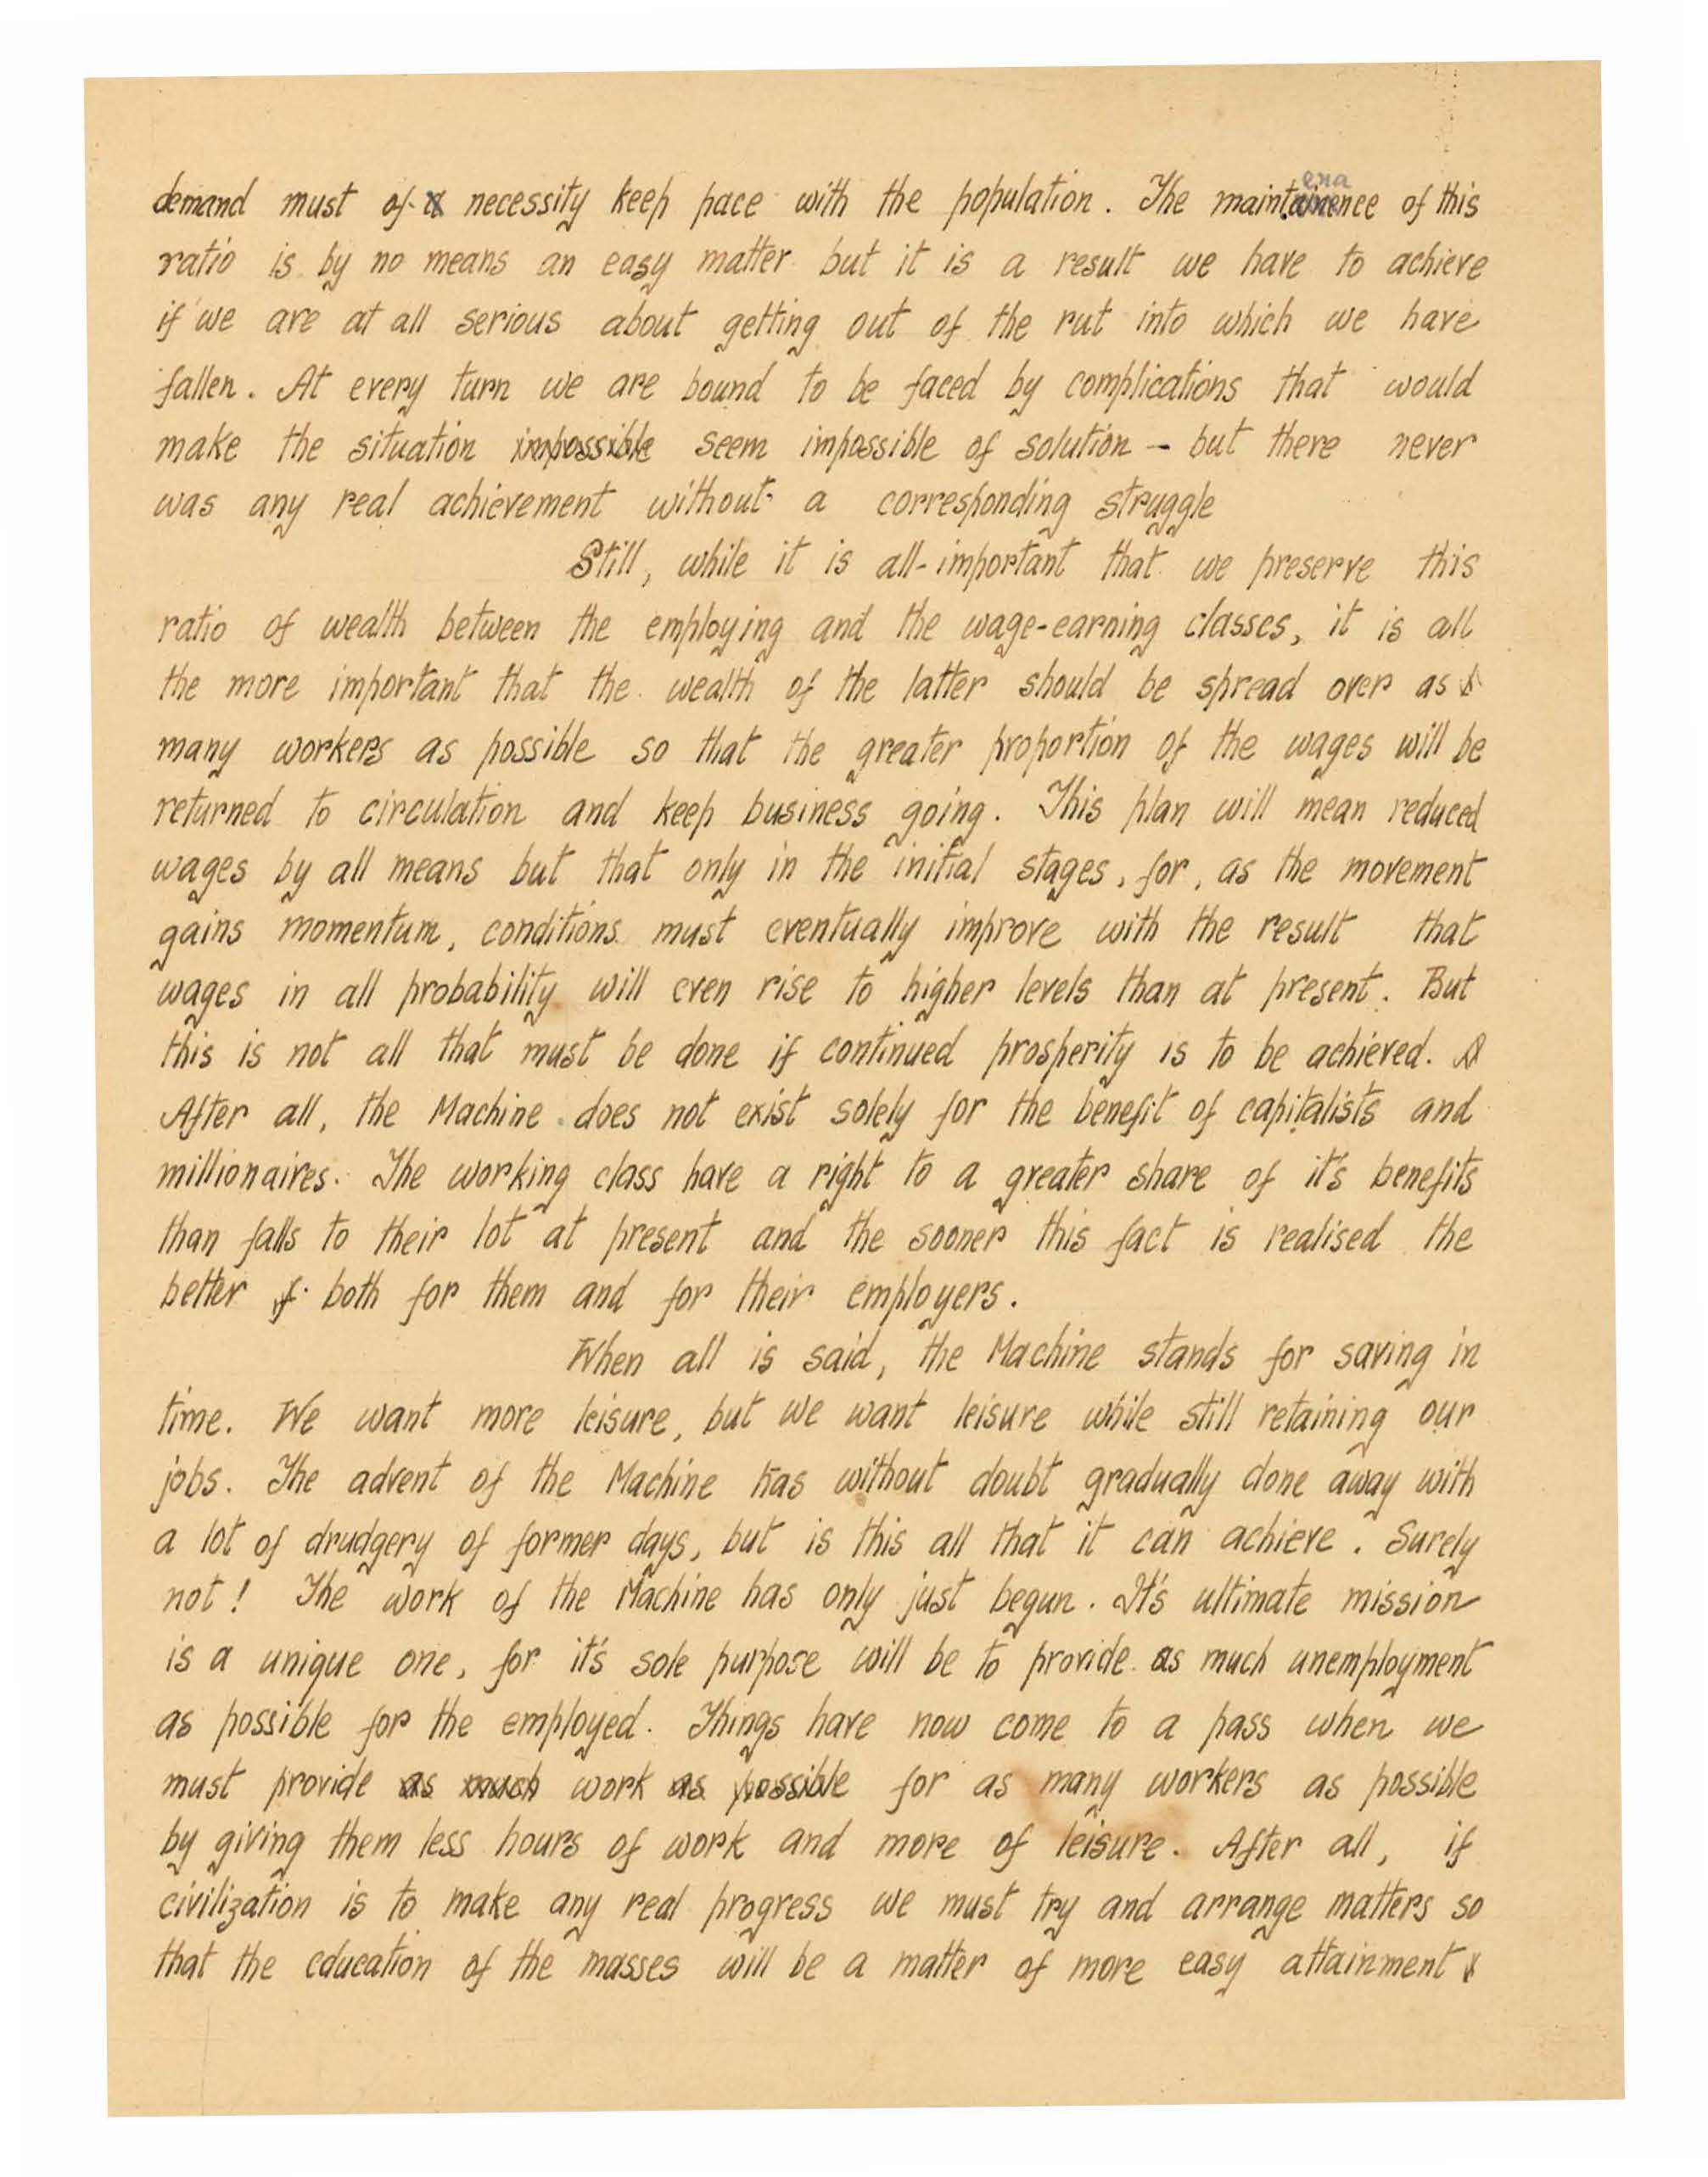 demand must of necessity keep pace with the population. The maintenance of this
ratio is by no means an easy matter but it is a result we have to achieve
if we are at all serious about getting out of the rut into which we have
fallen. At every turn we are bound to be faced by complications that would
make the situation impossible seem impossible of solution - but there never
was any real achievement without a corresponding struggle
Still, while it is all-important that we preserve this
ratio of wealth between the employing and the wage-earning classes, it is all
the more important that the wealth of the latter should be spread over as
many workers as possible so that the greater proportion of the wages will be
returned to circulation and keep business going. This plan will mean reduced
wages by all means but that only in the initial stages, for, as the movement
gains momentum, conditions must eventually improve with the result that
wages in all probability will even rise to higher levels than at present. But
this is not all that must be done if continued prosperity is to be achieved.
After all, the Machine does not exist solely for the benefit of capitalists and
millionaires. The working class have a right to a greater share of it's benefits
than falls to their lot at present and the sooner this fact is realised the
better both for them and for their employers.
When all is said, the Machine stands for saving in
time. We want more leisure, but we want leisure while still retaining our
jobs. The advent of the Machine has without doubt gradually done away with
a lot of drudgery of former days, but is this all that it can achieve. Surely
not! The work of the Machine has only just begun. It's ultimate mission
is a unique one, for it's sole purpose will be to provide as much unemployment
as possible for the employed. Things have now come to a pass when we
must provide as much work as possible for as many workers as possible
by giving them less hours of work and more of leisure. After all, if
civilization is to make any real progress we must try and arrange matters so
that the education of the masses will be a matter of more easy attainment